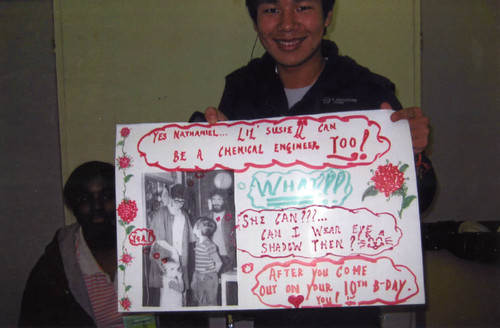 YES NATHANIEL... LIL' SUSIE CAN
BE A CHEMICAL ENGINEER TOO!
WHAT???
SHE CAN???...
CAN I WEAR EYE
SHADOW THEN?
YOU!
AFTER YOU COME
OUT ON YOUR 10TH B-DAY.
YOU!